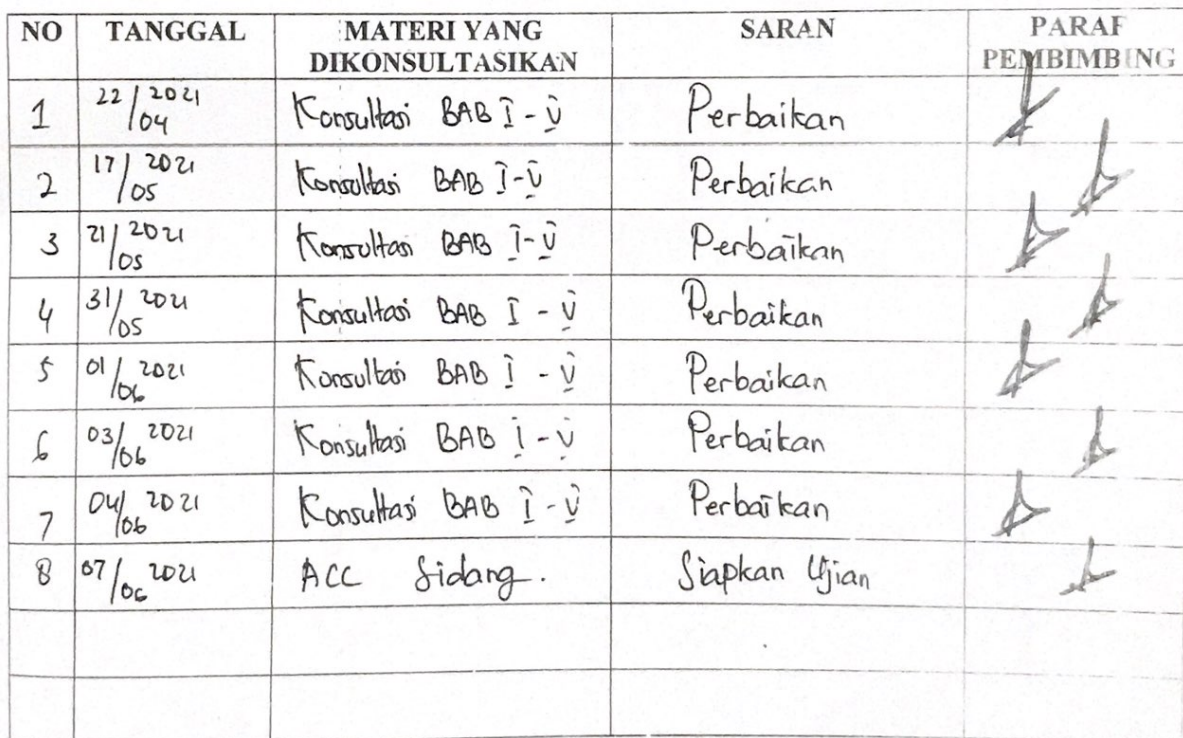 NO TANGGAL MATERI YANG DIKONSULTASIKAN SARAN PARAF PEMBIMBING
1 22/04 2021 Konsultasi BAB I - V Perbaikan
2 17/05 2021 Konsultasi BAB I - V Perbaikan
3 21/05 2021 Konsultasi BAB I - V Perbaikan
4 31/05 2021 Konsultasi BAB I - V Perbaikan
5 01/06 2021 Konsultasi BAB I - V Perbaikan
6 03/06 2021 Konsultasi BAB I - V Perbaikan
7 04/06 2021 Konsultasi BAB I - V Perbaikan
8 07/06 2021 ACC Sidang. Siapkan Ujian